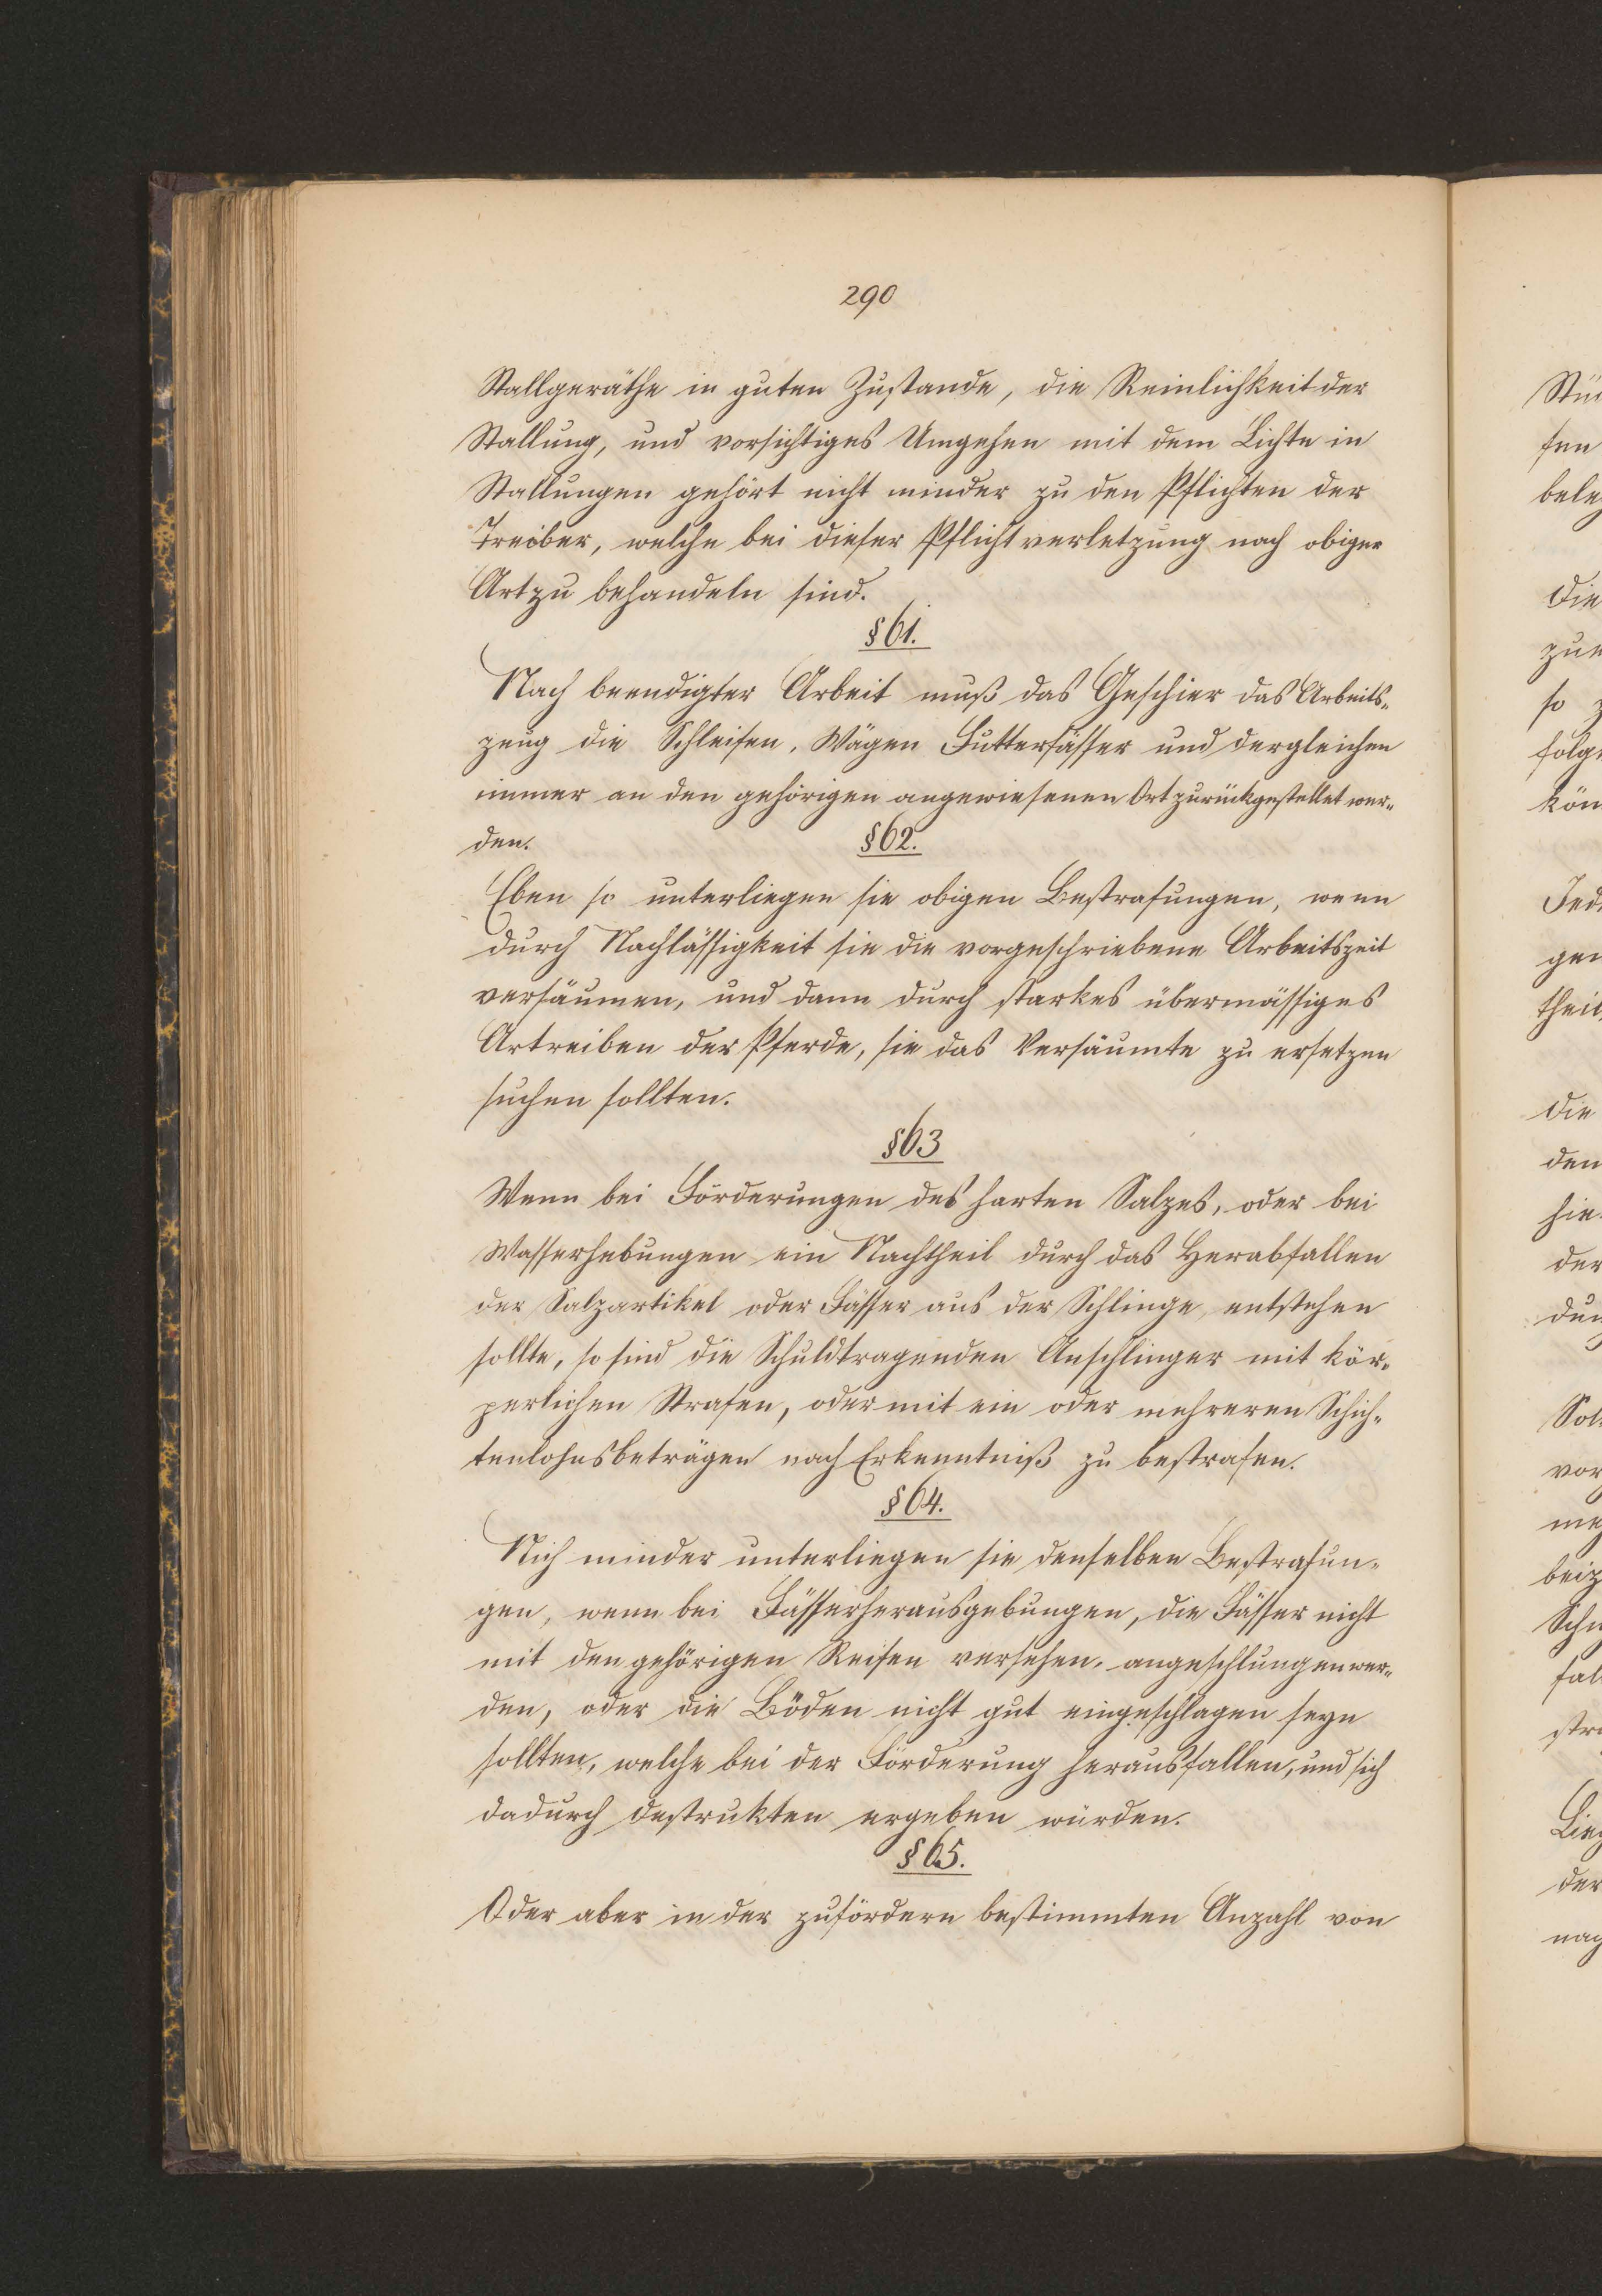 290
Stallgeräthe in guten Zustande, die Reinlichkeit der
Stallung, und vorsichtiges Umgehen mit dem Lichte in
Stallungen gehört nicht minder zu den Pflichten der
Treiber, welche bei dieser Pflichtverletzung nach obiger
Art zu behandeln sind.
§ 61.
Nach beendigter Arbeit muß das Geschier das Arbeits-
zeug die Schleifen, Wägen Futterfässer und dergleichen
immer an den gehörigen angewiesenen Ort zurückgestellet wer-
den.
§ 62.
Eben so unterliegen sie obigen Bestrafungen, wenn
durch Nachlässigkeit sie die vorgeschriebene Arbeitszeit
versäumen, und dann durch starkes übermässiges
Antreiben der Pferde, sie das Versäumte zu ersetzen
suchen sollten.
§ 63
Wenn bei Förderungen des harten Salzes, oder bei
Wasserhebungen ein Nachtheil durch das Herabfallen
der Salzartikel oder Fässer aus der Schlinge, entstehen
sollte, so sind die Schuldtragenden Anschlinger mit kör-
perlichen Strafen, oder mit ein oder mehreren Schich-
tenlohnsbeträgen nach Erkenntniß zu bestrafen.
§ 64.
Nich minder unterliegen sie denselben Bestrafun-
gen, wenn bei Fässerherausgebungen, die Fässer nicht
mit den gehörigen Reifen versehen, angeschlungen wer-
den, oder die Böden nicht gut eingeschlagen seyn
sollten, welche bei der Förderung herausfallen, und sich
dadurch destrukten ergeben würden.
§ 65.
Oder aber in der zufördern bestimmten Anzahl von